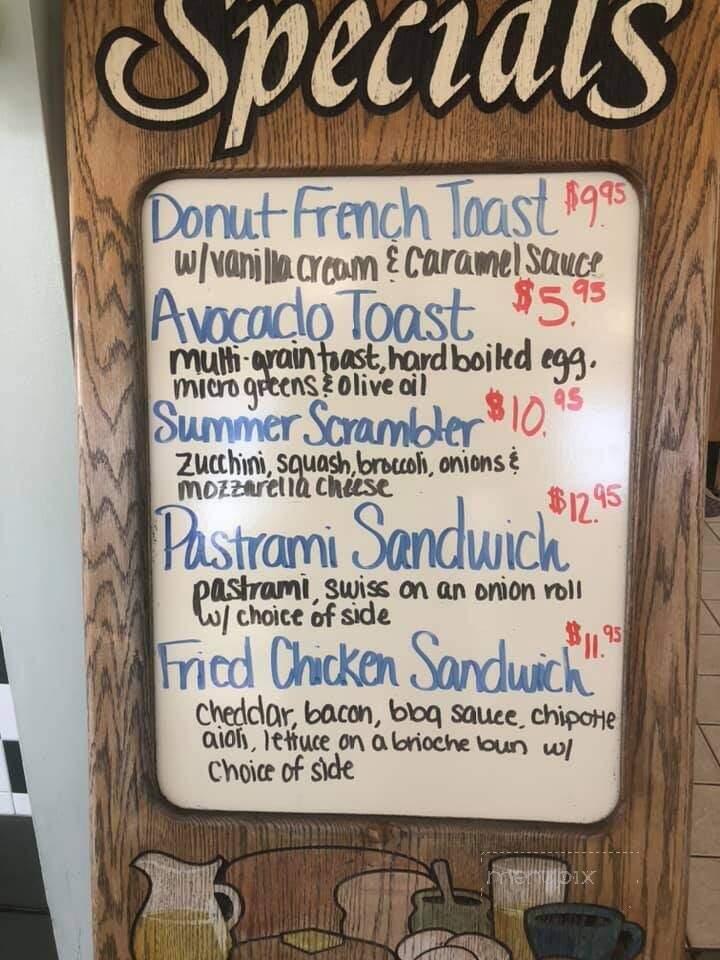 Specials
Donut French Toast $9.95
w/vanilla cream & caramel sauce
Avocado Toast $5.95
multi-grain toast, hard boiled egg.
micro greens & olive oil
Summer Scrambler $10.95
zucchini, squash, broccoli, onions &
mozzarella cheese
$12.95
Pastrami Sandwich
pastrami, swiss on an onion roll
w/ choice of side
$11.95
Fried Chicken Sandwich
cheddar, bacon, bbq sauce, chipotle
aioli, lettuce on a brioche bun w/
choice of side
menupix